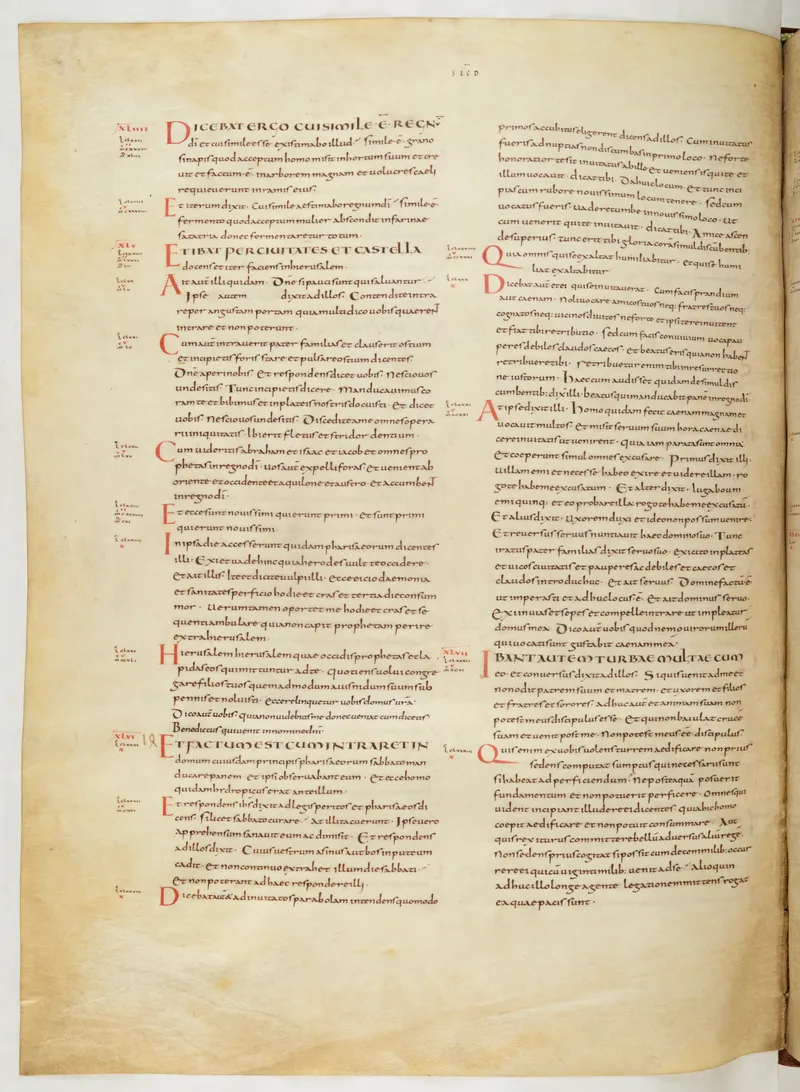 SECD
XLIIII
DICEBAT ERGO CUI SIMILE Ē REGNŪ
dī et cui simile esse existimabo illud · Simile ē grano
sinapis quod acceptum homo misit in hortum suum et cre
uit et factum ē in arborem magnam et uolucres caeli
requieuerunt in ramis eius ·
Et iterum dixit · Cui simile aestimabo regnum dī · Simile ē
fermento quod acceptum mulier abscondit in farinae
sata tria donec fermentaretur totum ·
XLV
ET IBAT PER CIUITATES ET CASTELLA
docens et iter faciens in hierusalem ·
Ait aut illi quidam · Dn̄e si pauci sunt qui saluantur
Ipse autem dixit ad illos · Contendite intra
re per angustam portam quia multi dico uobis quaerent
intrare et non poterunt ·
Cum aut intrauerit pater familias et clauserit ostium
et incipietis foris stare et pulsare ostium dicentes
Dn̄e aperi nobis · Et respondens dicet uobis · Nescio uos
unde sitis · Tunc incipietis dicere · Manducauimus co
ram te et bibimus et in plateis nostris docuisti · Et dicet
uobis · Nescio uos unde sitis · Discedite a me omnes opera
rii iniquitatis · Ibi erit fletus et stridor dentium ·
Cum uideritis abraham et isaac et iacob et omnes pro
phetas in regno dī · uos aut expelli foras · Et uenient ab
oriente et occidente et aquilone et austro · Et accumbent
in regno dī ·
Et ecce sunt nouissimi qui erunt primi · Et sunt primi
qui erunt nouissimi
In ipsa die accesserunt quidam pharisaeorum dicentes
illi · Exi et uade hinc quia herodes uult te occidere ·
Et ait illis · Ite et dicite uulpi illi · Ecce eicio daemonia
et sanitates perficio hodie et cras et tertia die consum
mor · Uerumtamen oportet me hodie et cras et se
quenti ambulare quia non capit prophetam perire
extra hierusalem ·
Hierusalem hierusalem quae occidis prophetas et la
pidas eos qui mittuntur ad te · Quotiens uolui congre
gare filios tuos quemadmodum auis nidum suum sub
pennis et noluisti · ecce relinquetur uobis domus ur̄a ·
Dico aut uobis quia non uidebitis me donec ueniat cum dicetis
Benedictus qui uenit in nomine dn̄i ·
XLVI
ET FACTUM EST CUM INTRARET IN
domum cuiusdam principis pharisaeorum sabbato man
ducare panem · et ipsi obseruabant eum · Et ecce homo
quidam hydropicus erat ante illum ·
Et respondens ihs dixit ad legis peritos et pharisaeos di
cens · si licet sabbato curare · At illi tacuerunt · Ipse uero
apprehensum sanauit eum ac dimisit · Et respondens
ad illos dixit · Cuius uestrum asinus aut bos in puteum
cadit · Et non continuo extrahet illum die sabbati ·
Et non poterant ad haec respondere illi ·
Dicebat aut & ad inuitatos parabolam intendens quomodo
primos accubitus eligerent dicens ad illos · Cum inuitatus
fueris ad nuptias non discumbas in primo loco · Ne forte
honoratior te sit inuitatus ab illo et ueniens is qui te et
illum uocauit · dicat tibi · Da huic locum · Et tunc inci
pias cum rubore nouissimum locum tenere · Sed cum
uocatus fueris · Uade recumbe in nouissimo loco · Ut
cum uenerit qui te inuitauit · dicat tibi · Amice ascen
de superius · tunc erit tibi gloria coram simul discūbentib;
Quia omnis qui se exaltat humiliabitur · et qui se humi
liat exaltabitur
Dicebat aut et ei qui se inuitauerat · Cum facis prandium
aut caenam · Noli uocare amicos tuos neq; fratres tuos neq;
cognatos neq; uicinos diuites ne forte et ipsi te reinuitent
et fiat tibi retributio · Sed cum facis conuiuium uoca pau
peres debiles claudos caecos · et beatus eris quia non habent
retribuere tibi · retribuetur enim tibi in resurrectio
ne iustorum · Haec cum audisset quidam de simul dis
cumbentib; dix illi · beatus qui manducabit panē in regno dī
At ipse dixit illi · Homo quidam fecit caenam magnam et
uocauit multos · Et misit seruum suum hora caenae di
cere inuitatis ut uenirent · quia iam parata sunt omnia
Et coeperunt simul omnes excusare · Primus dixit illi ·
uillam emi et necesse habeo exire et uidere illam · ro
go te habe me excusatum · Et alter dixit · Iuga boum
emi quinq; et eo probare illa rogo te habe me excusatū ·
Et alius dixit · Uxorem duxi et ideo non possum uenire ·
Et reuersus seruus nuntiauit haec domino suo · Tunc
iratus pater familias dixit seruo suo · exi cito in plateas
et uicos ciuitatis et pauperes ac debiles et caecos et
claudos introduc huc · Et ait seruus · Domine factū ē
ut imperasti et adhuc locus ē · Et ait dominus seruo ·
Exi in uias et sepes et compelle intrare ut impleatur
domus mea · Dico aut uobis quod nemo uirorum illorū
qui uocati sunt gustabit caenam meā ·
XLVII
IBANT AUTEM TURBAE MULTAE CUM
eo · et conuersus dixit ad illos · Si quis uenit ad me et
non odit patrem suum et matrem · et uxorem et filios
et fratres et sorores · Adhuc aut et animam suam non
potest meus discipulus esse · Et qui non baiulat crucē
suam et uenit post me · Non potest meus eē discipulus
Quis enim ex uobis uolens turrem aedificare non prius
sedens computat sumptus qui necessarii sunt
si habeat ad perficiendum · Ne posteaquā posuerit
fundamentum et non potuerit perficere · Omnes qui
uident incipiant illudere ei dicentes · quia hic homo
coepit aedificare et non potuit consummare · Aut
quis rex iturus committere bellū aduersus aliū regē ·
Non sedens prius cogitat si possit cum decem milib; occur
rere ei qui cū uiginti milib; uenit ad se · Alioquin
adhuc illo longe agente legationem mittens rogat
ea quae pacis sunt ·